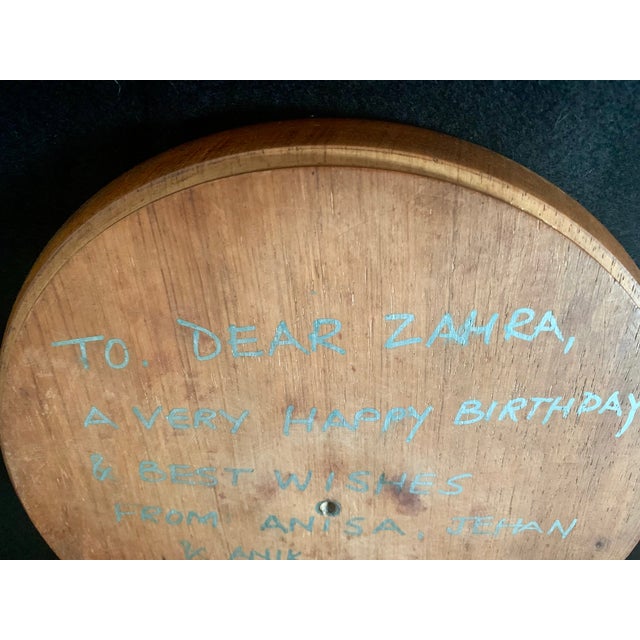 TO. DEAR ZAHRA,
A VERY HAPPY BIRTHDAY
& BEST WISHES
FROM ANISA, JEHAN
& ANIK